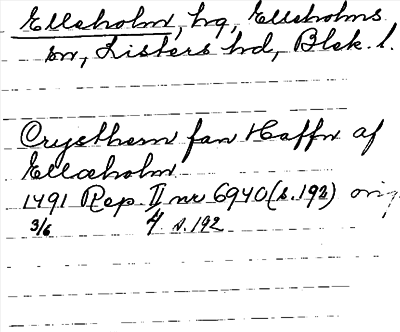 Elleholm, hg, Elleholms
sn, Listers hd, Blek. l.
Crysthern fan Haffn af
Ellæholm
1491 Rep. II nr 6940 (s. 192) orig
3/6 4 s. 192